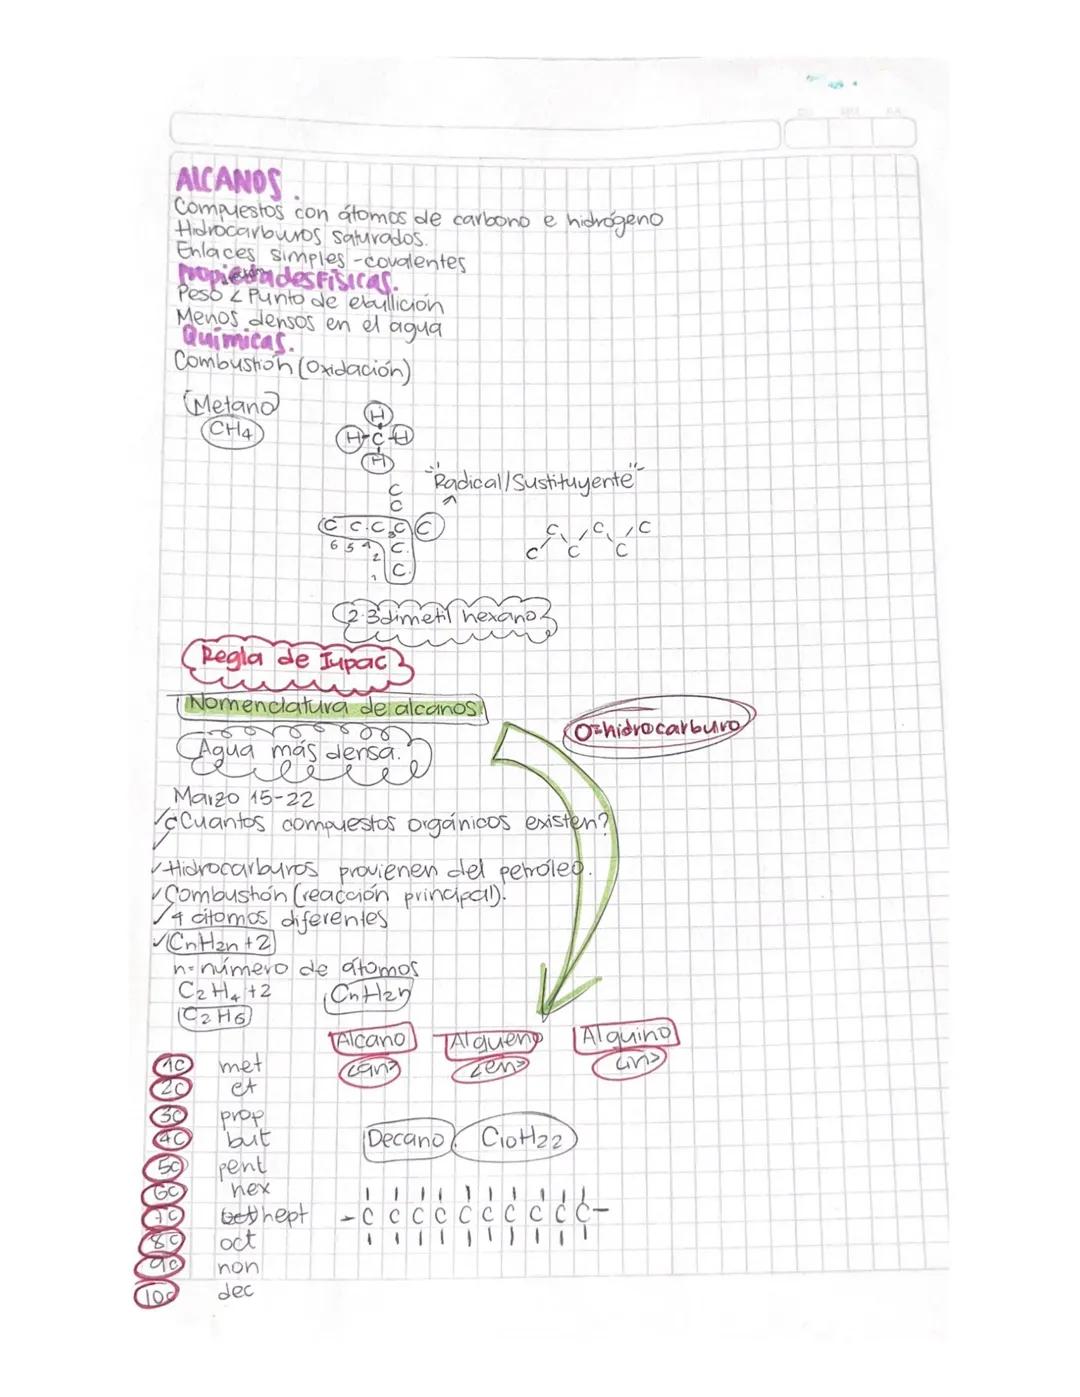 ALCANOS.
Compuestos con átomos de carbono e hidrógeno
Hidrocarburos saturados.
Enlaces simples-covalentes
Propiedades Físicas.
Peso < Punto de ebullición
Menos densos en el agua
Químicas.
Combustión (Oxidación)
Metano
CH4
H
H-C-H
H
"Radical/Sustituyente"
C
C
C C C C C
6 5 4 3
C
2
C
1
C C C
C C C
2-3 dimetil hexano
Regla de Iupac
Nomenclatura de alcanos
O=hidrocarburo
Agua más densa.
Marzo 15-22
✓¿Cuantos compuestos orgánicos existen?
✓
✓Hidrocarburos provienen del petróleo.
✓Combustión (reacción principal).
✓4 átomos diferentes
✓CnH2n+2
n=número de átomos
C2H4+2 CnH2n
C2H6
Alcano Algueno Alquino
<an> <en> <in>
1C met
2C et
3C prop
4C but
Decano C10H22
5C pent
6C hex
7C hept
-C C C C C C C C C C-
8C oct
9C non
10C dec